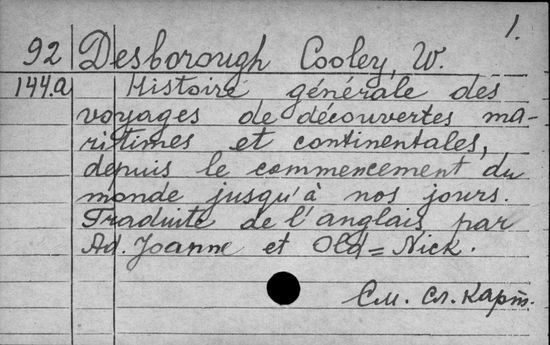 1.
92 Desborough Cooley, W.
144.a Histoire générale des
voyages de découvertes ma-
ritimes et continentales,
depuis le commencement du
monde jusqu'à nos jours.
Traduite de l'anglais par
Ad. Joanne et Old=Nick.
См. сл. карт.